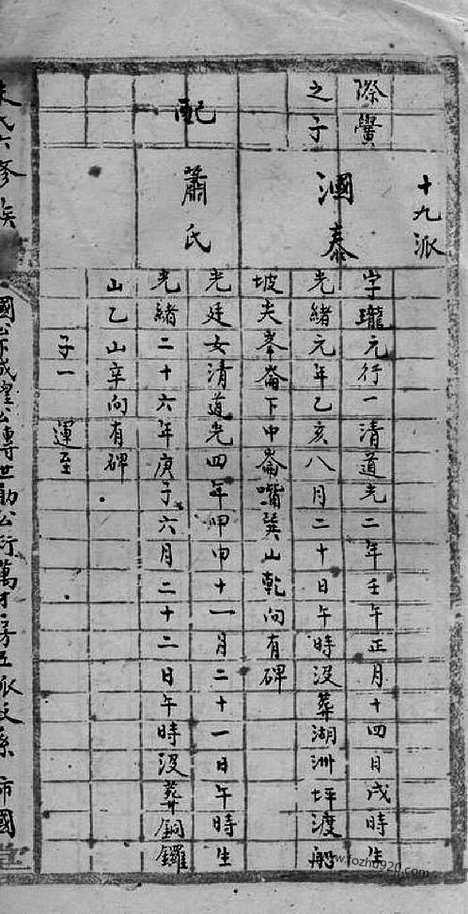 十九派
際黌之子
泗泰
字瓏元行一清道光二年壬午正月十四日戌時生
光緒元年乙亥八月二十日午時没葬湖洲坪渡船
坡夫峯崙下中崙嘴巽山乾向有碑
配
蕭氏
光廷女清道光四年甲申十一月二十一日午時生
光緒二十六年庚子六月二十二日午時没葬銅鑼
山乙山辛向有碑
子一 運至
氏六修族
國公下成望公傳世助公衍萬才房五派
www.fozhu920.com